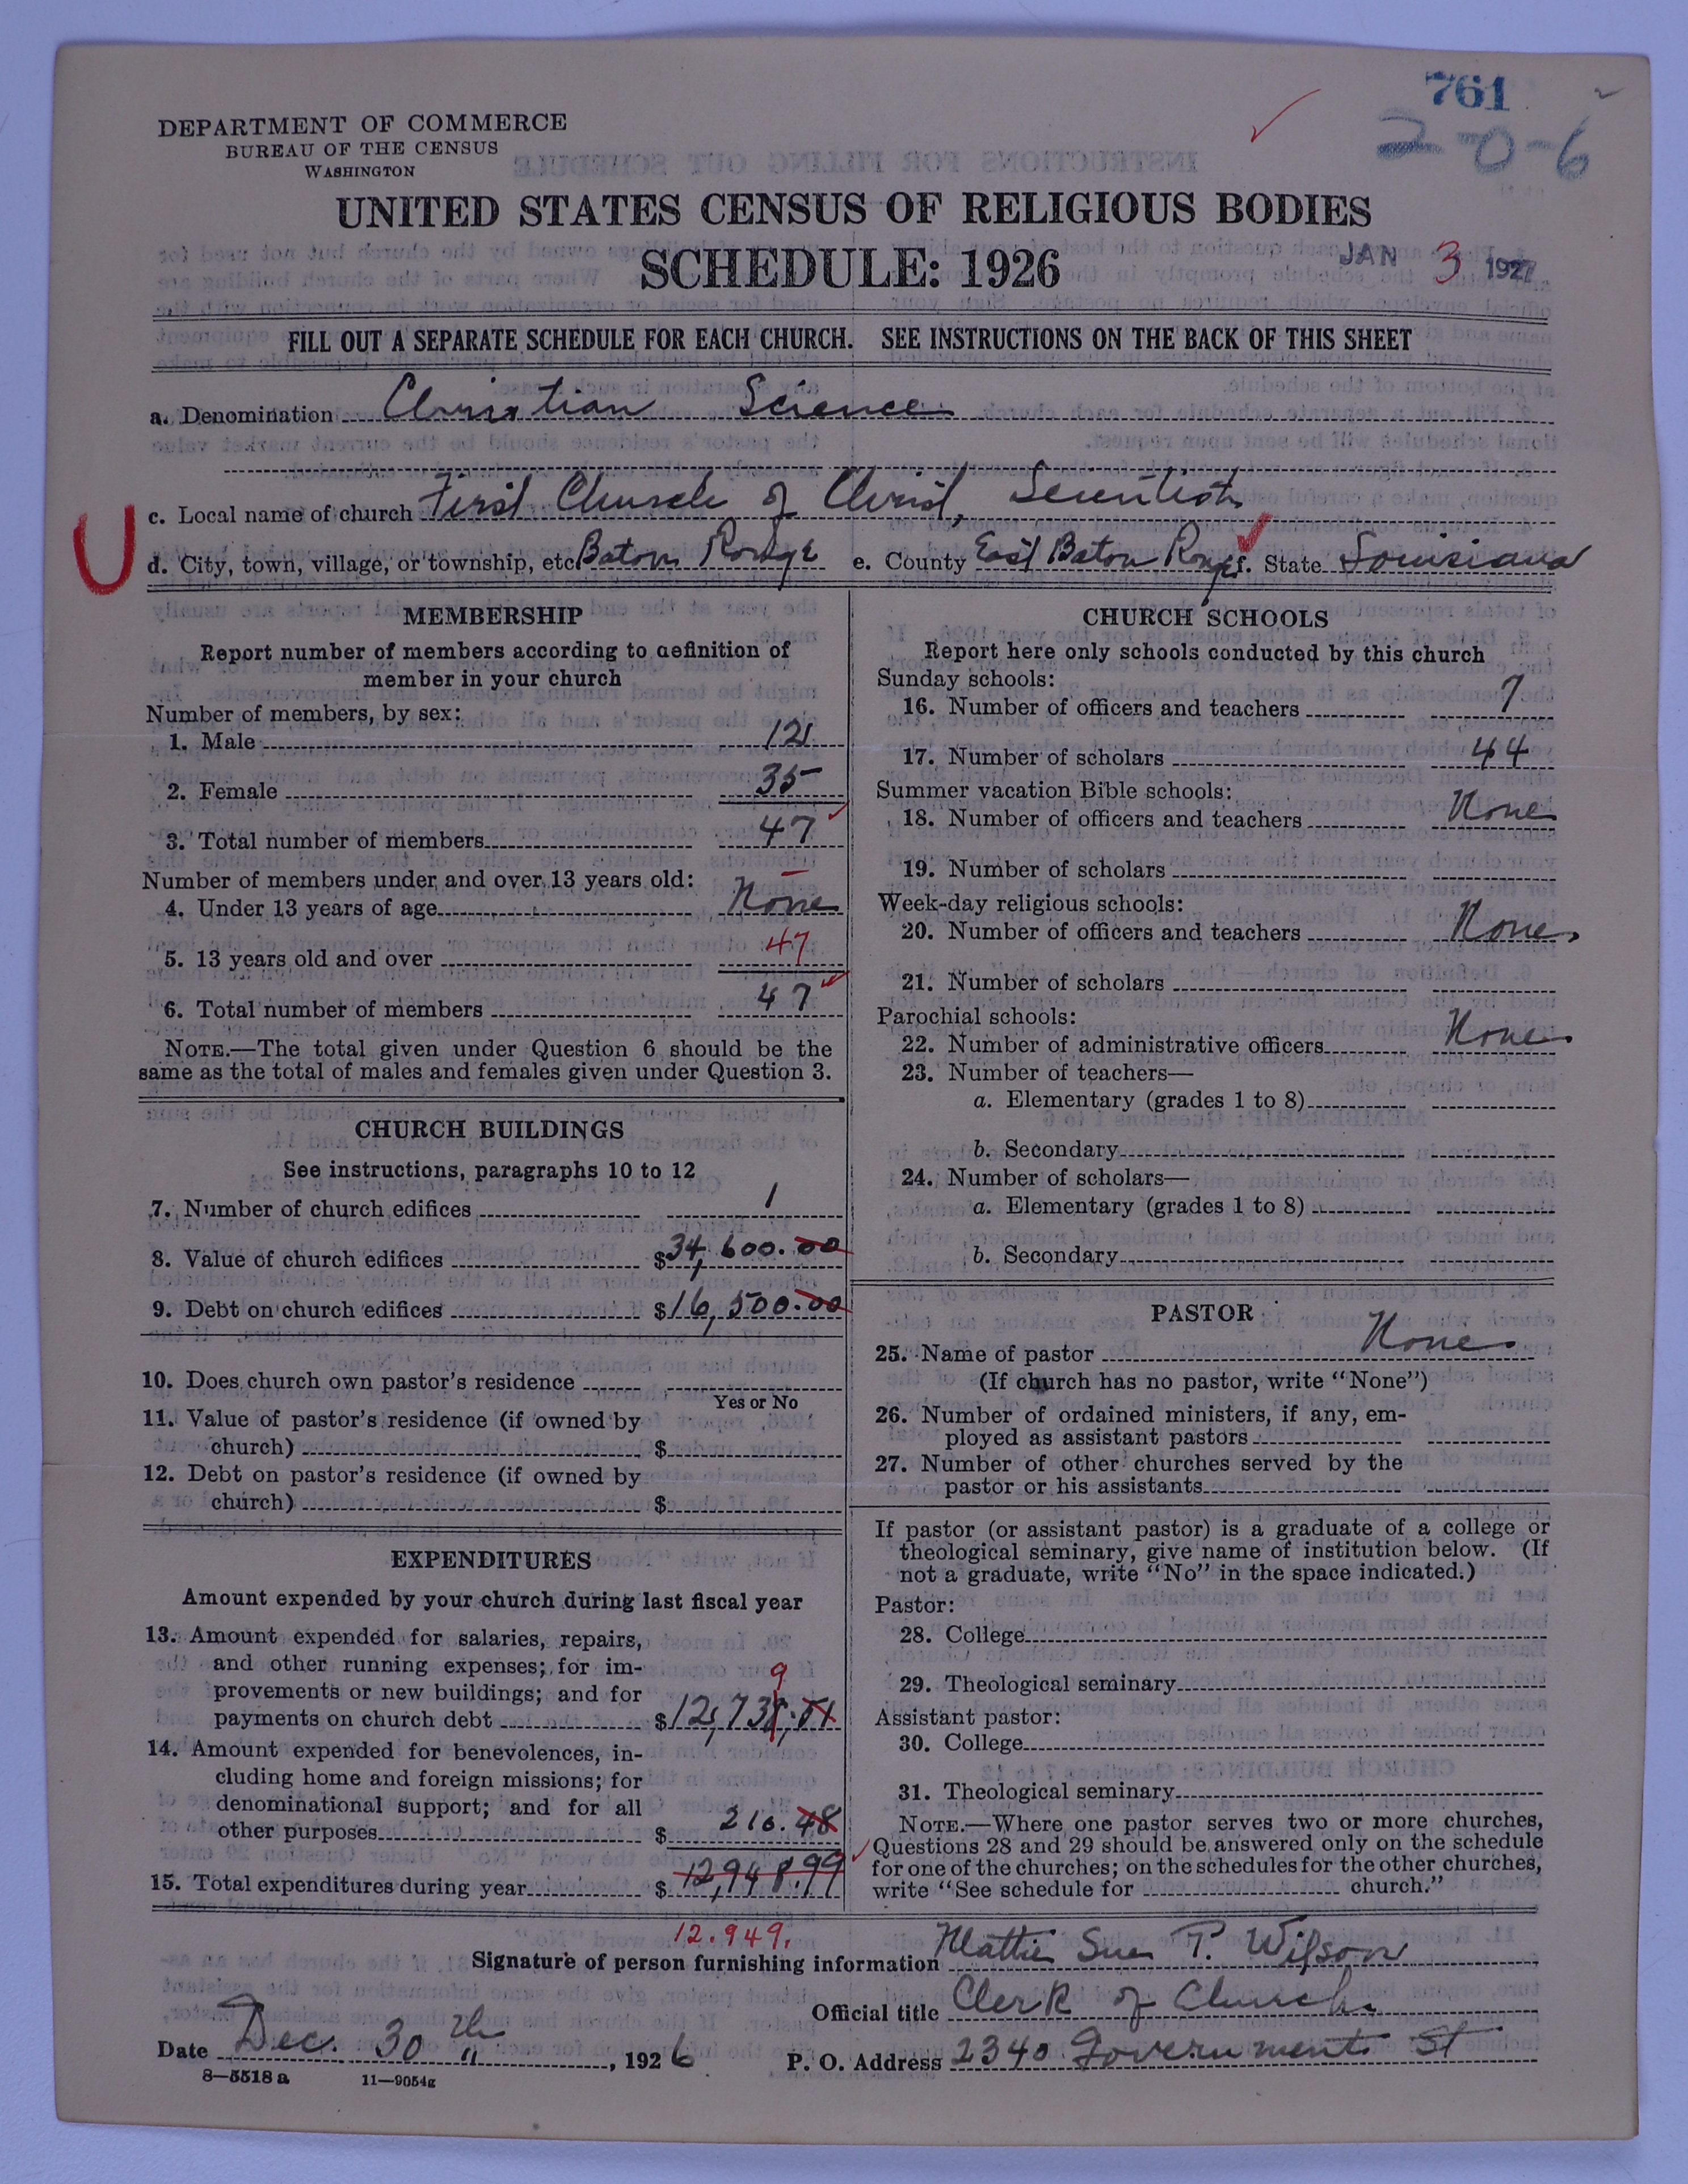 761
2-0-6
DEPARTMENT OF COMMERCE
BUREAU OF THE CENSUS
WASHINGTON
UNITED STATES CENSUS OF RELIGIOUS BODIES
SCHEDULE: 1926
JAN 3 1927
FILL OUT A SEPARATE SCHEDULE FOR EACH CHURCH. SEE INSTRUCTIONS ON THE BACK OF THIS SHEET
a. Denomination Christian Science
U
c. Local name of church First Church of Christ, Scientist
d. City, town, village, or township, etc. Baton Rouge e. County East Baton Rouge f. State Louisiana
MEMBERSHIP
Report number of members according to definition of
member in your church
Number of members, by sex:
1. Male 12
2. Female 35
3. Total number of members 47
Number of members under and over 13 years old:
4. Under 13 years of age None
5. 13 years old and over 47
6. Total number of members 47
NOTE.—The total given under Question 6 should be the
same as the total of males and females given under Question 3.
CHURCH BUILDINGS
See instructions, paragraphs 10 to 12
7. Number of church edifices 1
8. Value of church edifices $34,600.00
9. Debt on church edifices $16,500.00
10. Does church own pastor's residence
Yes or No
11. Value of pastor's residence (if owned by
church) $
12. Debt on pastor's residence (if owned by
church) $
EXPENDITURES
Amount expended by your church during last fiscal year
13. Amount expended for salaries, repairs,
and other running expenses; for im-
9
provements or new buildings; and for
payments on church debt $12,738.51
14. Amount expended for benevolences, in-
cluding home and foreign missions; for
denominational support; and for all
other purposes $ 210.48
15. Total expenditures during year $ 12,948.99
12.949.
CHURCH SCHOOLS
Report here only schools conducted by this church
Sunday schools:
16. Number of officers and teachers 7
17. Number of scholars 44
Summer vacation Bible schools:
18. Number of officers and teachers None
19. Number of scholars
Week-day religious schools:
20. Number of officers and teachers None
21. Number of scholars
Parochial schools:
22. Number of administrative officers None
23. Number of teachers—
a. Elementary (grades 1 to 8)
b. Secondary
24. Number of scholars—
a. Elementary (grades 1 to 8)
b. Secondary
PASTOR
25. Name of pastor None
(If church has no pastor, write "None")
26. Number of ordained ministers, if any, em-
ployed as assistant pastors
27. Number of other churches served by the
pastor or his assistants
If pastor (or assistant pastor) is a graduate of a college or
theological seminary, give name of institution below. (If
not a graduate, write "No" in the space indicated.)
Pastor:
28. College
29. Theological seminary
Assistant pastor:
30. College
31. Theological seminary
NOTE.—Where one pastor serves two or more churches,
Questions 28 and 29 should be answered only on the schedule
for one of the churches; on the schedules for the other churches,
write "See schedule for church."
Signature of person furnishing information Mattie Sue T. Wilson
Official title Clerk of Church
Date Dec. 30th, 1926 P. O. Address 2340 Government St
8—5518a 11—9054g